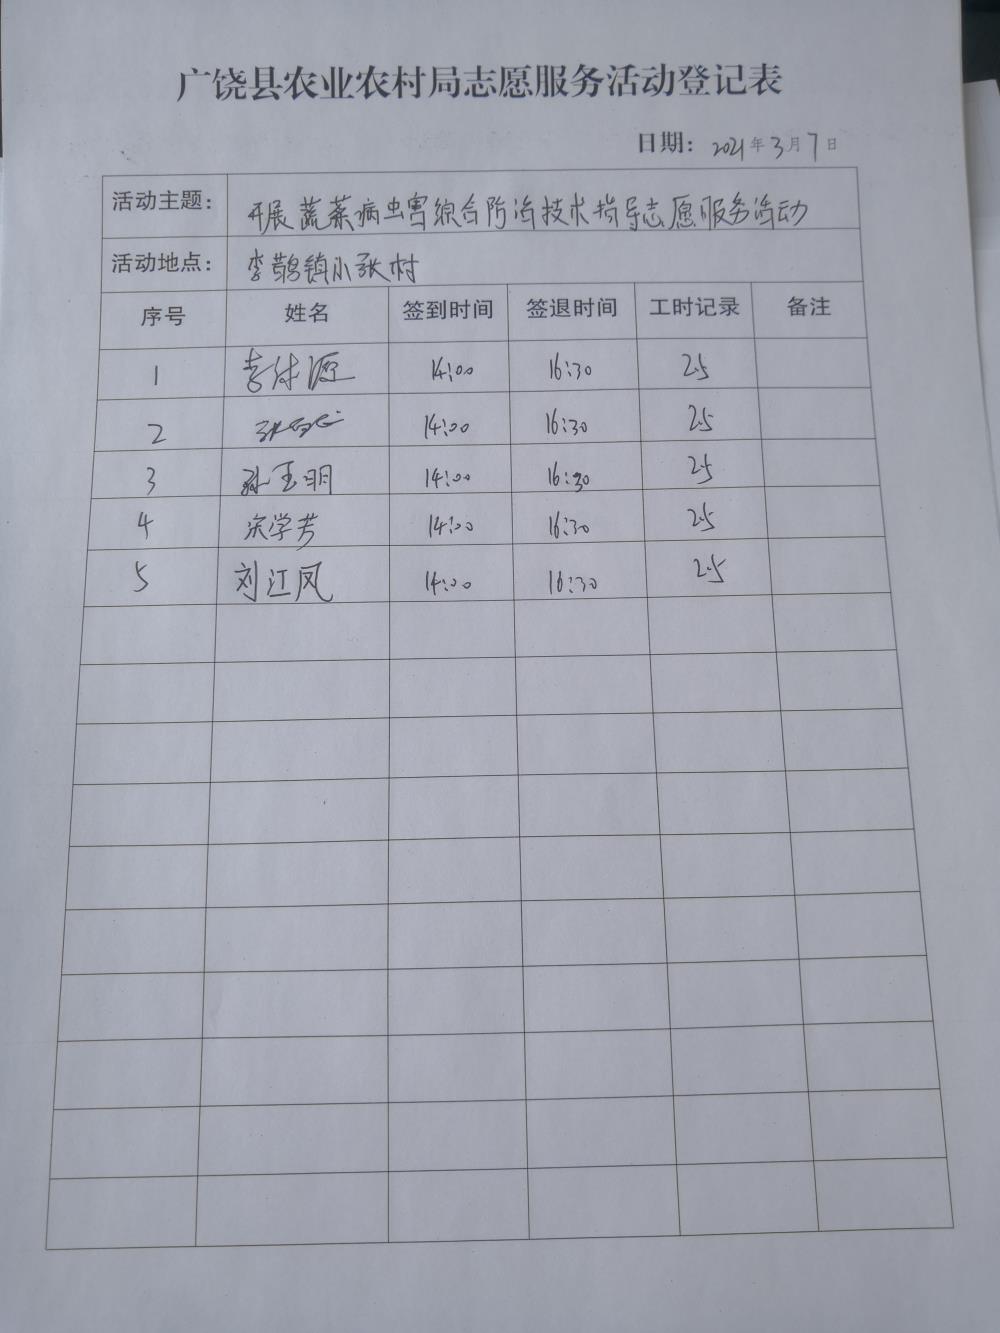 广饶县农业农村局志愿服务活动登记表
日期: 2021年3月7日
活动主题: 开展蔬菜病虫害综合防治技术指导志愿服务活动
活动地点: 李鹊镇小张村
序号 姓名 签到时间 签退时间 工时记录 备注
1 14:00 16:30 2.5
2 14:00 16:30 2.5
3 孙玉明 14:00 16:30 2.5
4 宋学芳 14:00 16:30 2.5
5 刘江凤 14:00 16:30 2.5